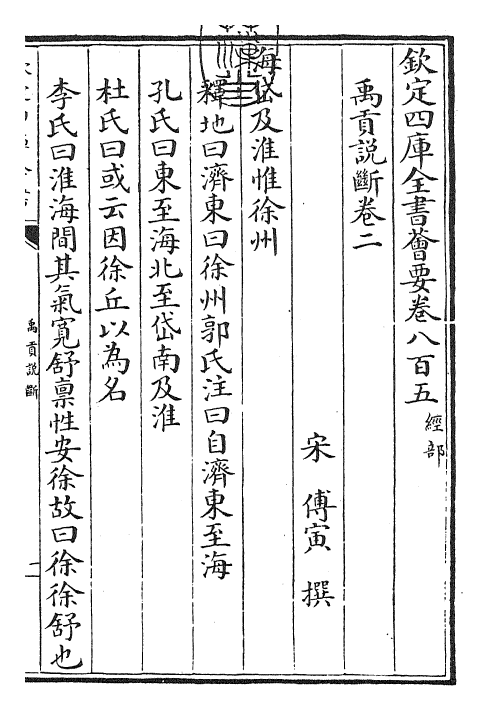 欽定四庫全書薈要卷八百五 經部
禹貢說斷卷二
宋 傅寅 撰
海岱及淮惟徐州
釋地曰濟東曰徐州郭氏注曰自濟東至海
孔氏曰東至海北至岱南及淮
杜氏曰或云因徐丘以為名
李氏曰淮海間其氣寬舒稟性安徐故曰徐徐舒也
禹貢說斷